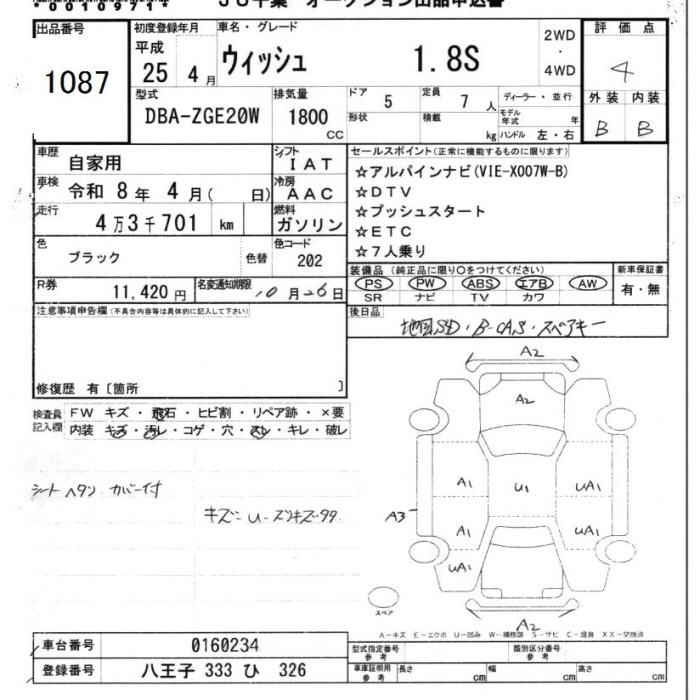 00010971
JU千葉 オークション出品申込書
出品番号
1087
初度登録年月
平成
25 4月
車名・グレード
ウィッシュ 1.8S
2WD
・
4WD
評価点
4
外装 内装
B B
型式
DBA-ZGE20W
排気量
1800
CC
ドア 5
形状
定員 7 人
積載 kg
ディーラー・並行
モデル年式 年
ハンドル 左・右
車歴 自家用
シフト IAT
車検 令和 8年 4月( 日)
冷房 AAC
走行 4万3千701 km
燃料 ガソリン
色 ブラック 色替
色コード 202
R券 11,420円
名変通知期限 10月26日
セールスポイント(正常に機能するものに限ります)
☆アルパインナビ(VIE-X007W-B)
☆DTV
☆プッシュスタート
☆ETC
☆7人乗り
装備品(純正品に限り○をつけてください)
PS PW ABS エアB AW
SR ナビ TV カワ
新車保証書
有・無
後日品
地図SD・B-CAS・スペアキー
注意事項申告欄(不具合内容等は具体的に記入して下さい)
修復歴 有〔箇所 〕
検査員記入欄
FW キズ・飛石・ヒビ割・リペア跡・×要
内装 キズ・汚レ・コゲ・穴・スレ・キレ・破レ
シートヘタン カバー付
A2
A2
A1 U1 UA1
A3
A1 UA1
UA1
A2
スペア
A-キズ E-エクボ U-凹み W-補修跡 S-サビ C-腐食 XX-交換済
車台番号 0160234
登録番号 八王子 333 ひ 326
型式指定番号 参考
類別区分番号 参考
車庫証明用 参考 長さ cm 幅 cm 高さ cm